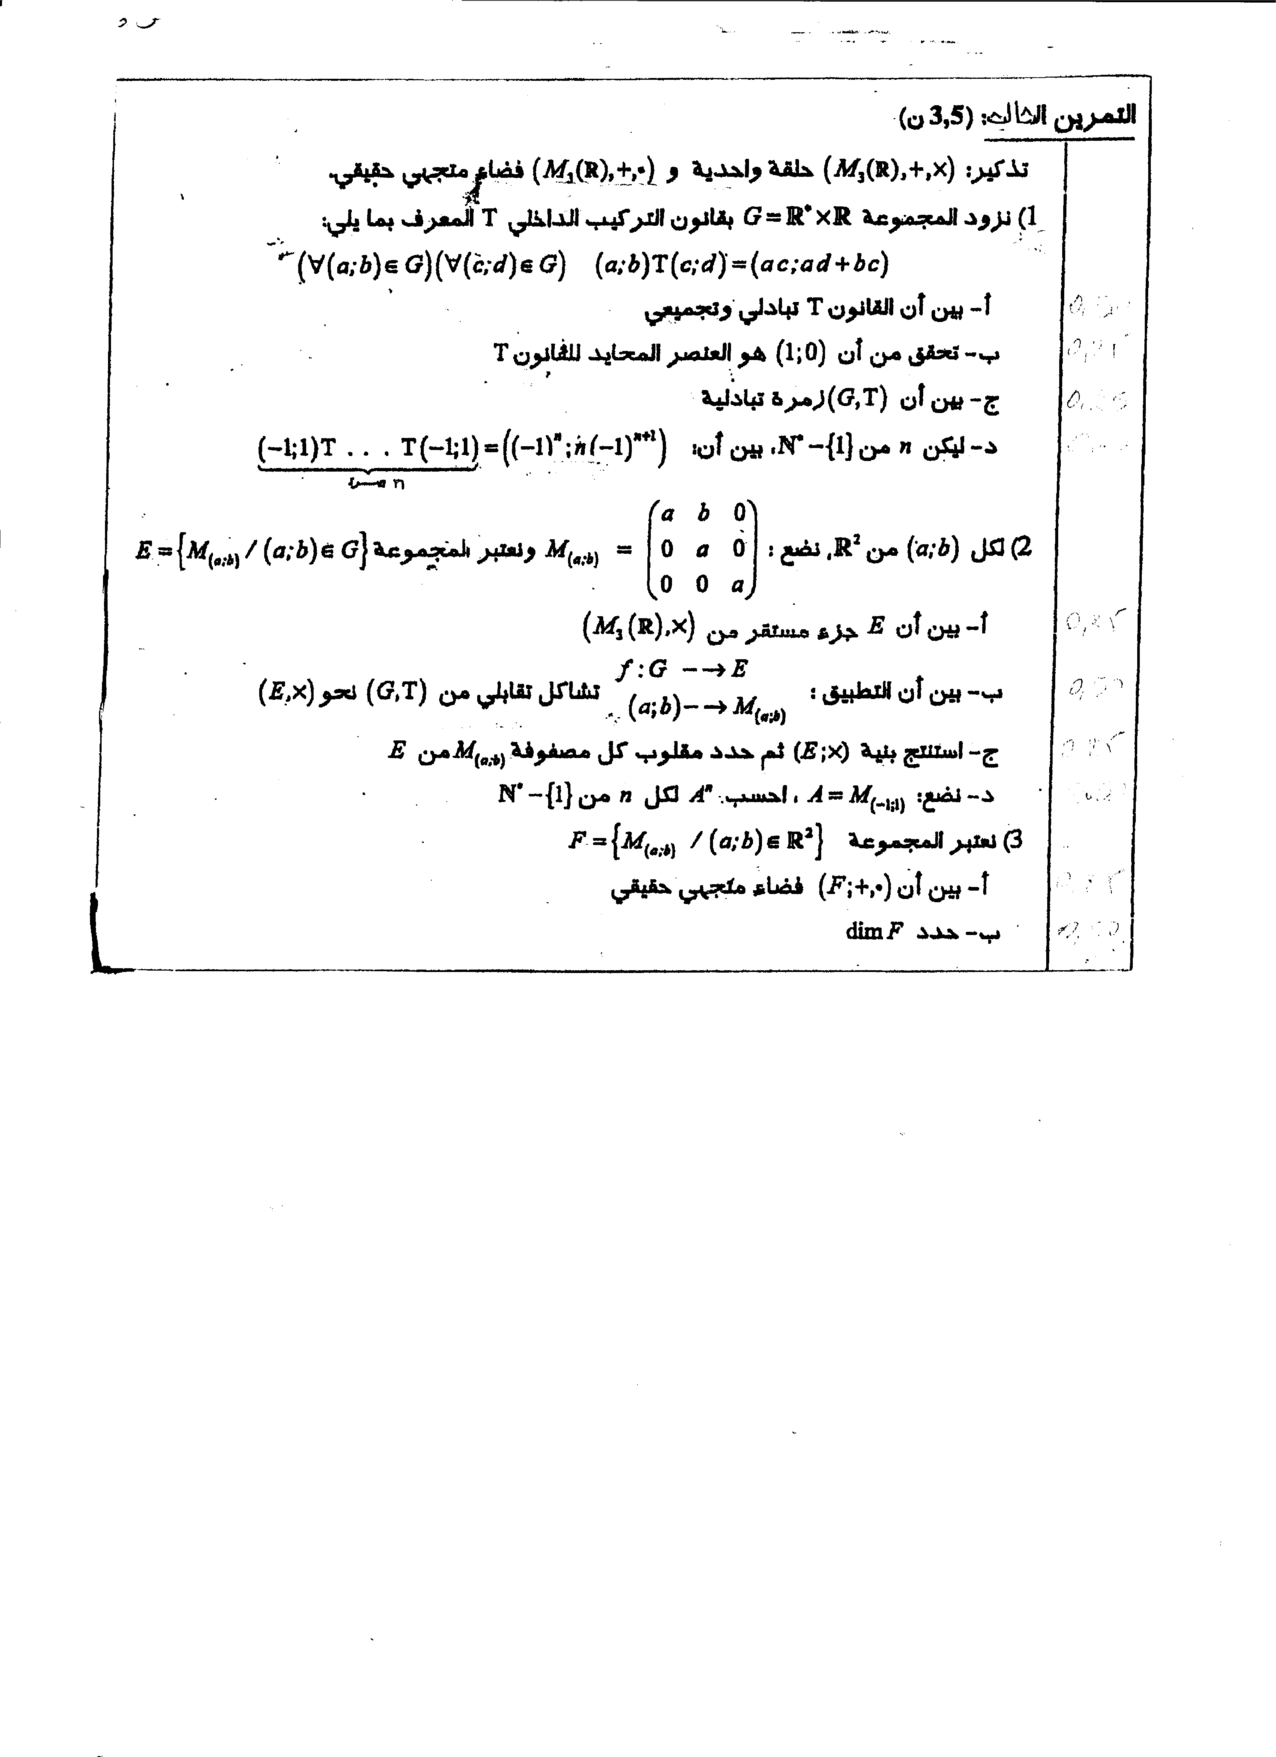 التمرين الثالث: (3,5 ن)
تذكير: (M₃(ℝ),+,×) حلقة واحدية و (M₃(ℝ),+,•) فضاء متجهي حقيقي.
1) نزود المجموعة G=ℝ*×ℝ بقانون التركيب الداخلي T المعرف بما يلي:
(∀(a;b)∈G)(∀(c;d)∈G) (a;b)T(c;d)=(ac;ad+bc)
أ- بين أن القانون T تبادلي وتجميعي
ب- تحقق من أن (1;0) هو العنصر المحايد للقانون T 0,25
ج- بين أن (G,T) زمرة تبادلية
د- ليكن n من ℕ*-{1}، بين أن: (-1;1)T . . . T(-1;1)=((-1)ⁿ;n(-1)ⁿ⁺¹)
n مرة
2) لكل (a;b) من ℝ²، نضع: M₍a;b₎ = (a b 0 / 0 a 0 / 0 0 a) ونعتبر المجموعة E={M₍a;b₎ / (a;b)∈G}
أ- بين أن E جزء مستقر من (M₃(ℝ),×) 0,25
ب- بين أن التطبيق: f:G --→E (a;b)--→M₍a;b₎ تشاكل تقابلي من (G,T) نحو (E,×) 0,50
ج- استنتج بنية (E;×) ثم حدد مقلوب كل مصفوفة M₍a;b₎ من E
د- نضع: A=M₍-1;1₎ ، احسب Aⁿ لكل n من ℕ*-{1}
3) نعتبر المجموعة F={M₍a;b₎ / (a;b)∈ℝ²}
أ- بين أن (F;+,•) فضاء متجهي حقيقي
ب- حدد dim F